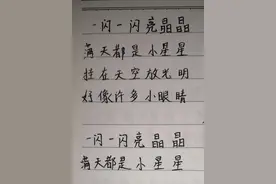 一闪一闪亮晶晶
满天都是小星星
挂在天空放光明
好像许多小眼睛
一闪一闪亮晶晶
满天都是小星星